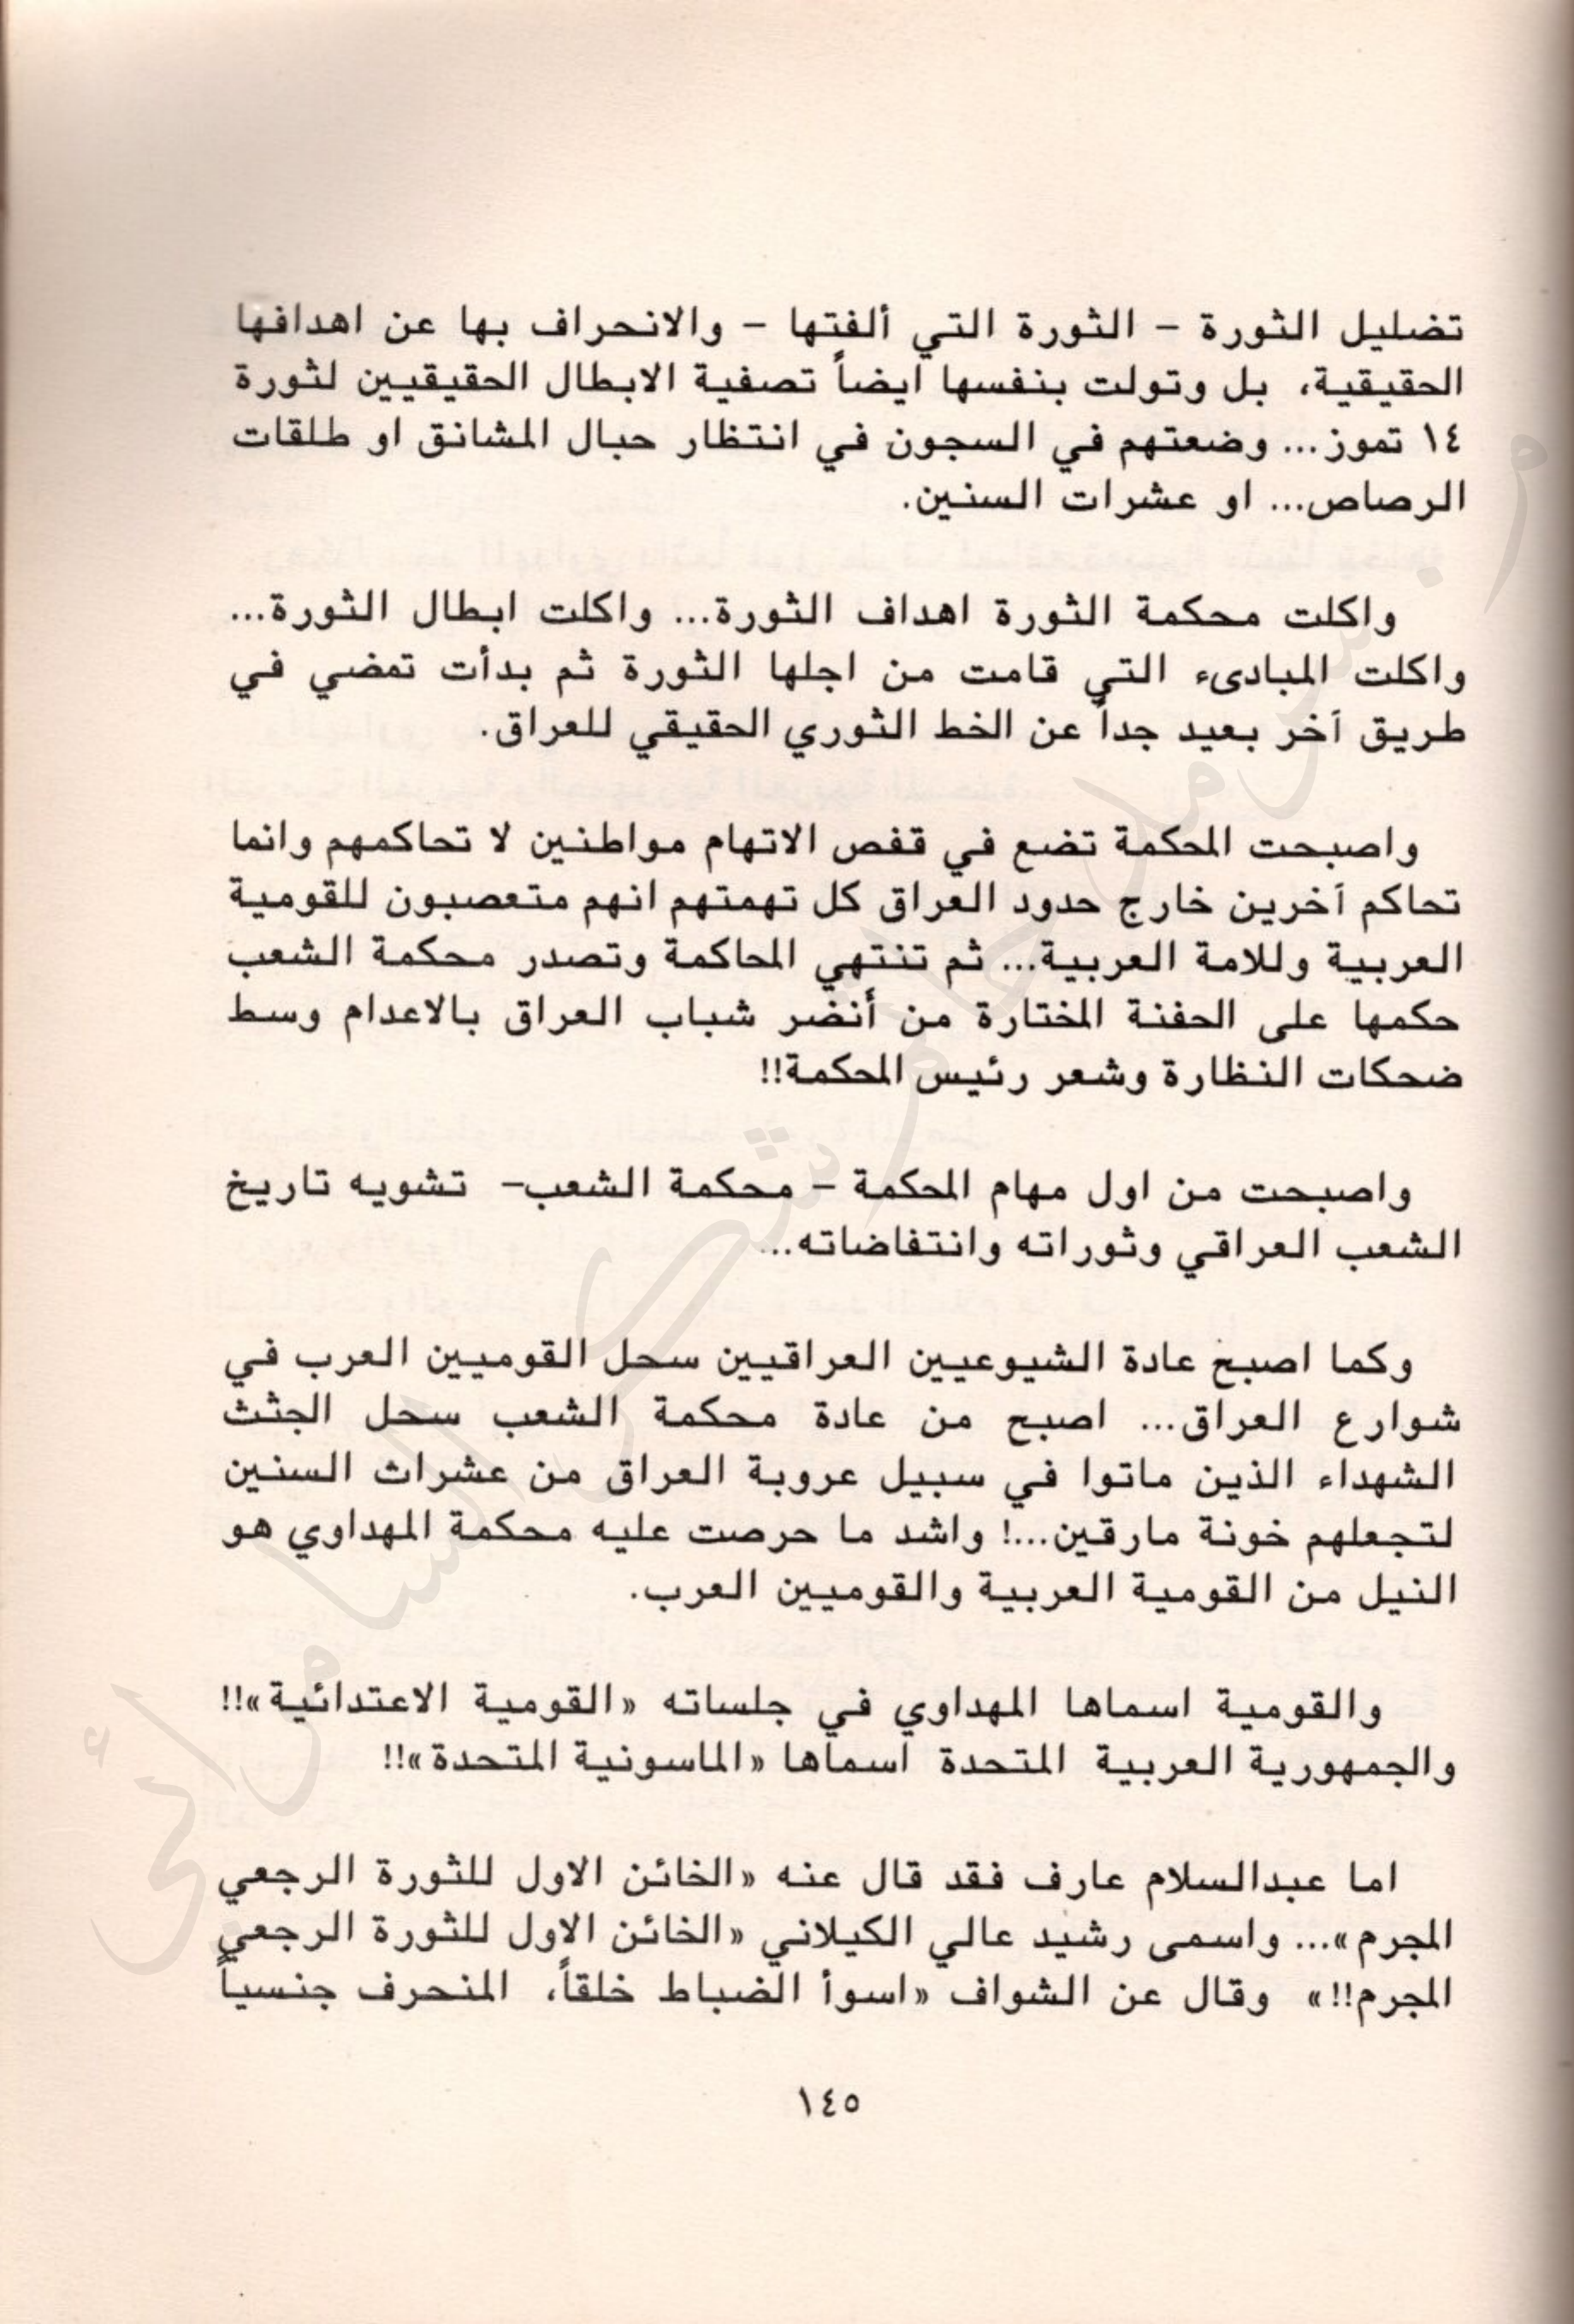 تضليل الثورة – الثورة التي ألفتها – والانحراف بها عن اهدافها
الحقيقية، بل وتولت بنفسها ايضاً تصفية الابطال الحقيقيين لثورة
١٤ تموز... وضعتهم في السجون في انتظار حبال المشانق او طلقات
الرصاص... او عشرات السنين.
واكلت محكمة الثورة اهداف الثورة... واكلت ابطال الثورة...
واكلت المبادىء التي قامت من اجلها الثورة ثم بدأت تمضي في
طريق آخر بعيد جداً عن الخط الثوري الحقيقي للعراق.
واصبحت المحكمة تضع في قفص الاتهام مواطنين لا تحاكمهم وانما
تحاكم آخرين خارج حدود العراق كل تهمتهم انهم متعصبون للقومية
العربية وللامة العربية... ثم تنتهي المحاكمة وتصدر محكمة الشعب
حكمها على الحفنة المختارة من أنضر شباب العراق بالاعدام وسط
ضحكات النظارة وشعر رئيس المحكمة!!
واصبحت من اول مهام المحكمة – محكمة الشعب– تشويه تاريخ
الشعب العراقي وثوراته وانتفاضاته...
وكما اصبح عادة الشيوعيين العراقيين سحل القوميين العرب في
شوارع العراق... اصبح من عادة محكمة الشعب سحل الجثث
الشهداء الذين ماتوا في سبيل عروبة العراق من عشرات السنين
لتجعلهم خونة مارقين...! واشد ما حرصت عليه محكمة المهداوي هو
النيل من القومية العربية والقوميين العرب.
والقومية اسماها المهداوي في جلساته «القومية الاعتدائية»!!
والجمهورية العربية المتحدة اسماها «الماسونية المتحدة»!!
اما عبدالسلام عارف فقد قال عنه «الخائن الاول للثورة الرجعي
المجرم»... واسمى رشيد عالي الكيلاني «الخائن الاول للثورة الرجعي
المجرم!!» وقال عن الشواف «اسوأ الضباط خلقاً، المنحرف جنسياً
١٤٥